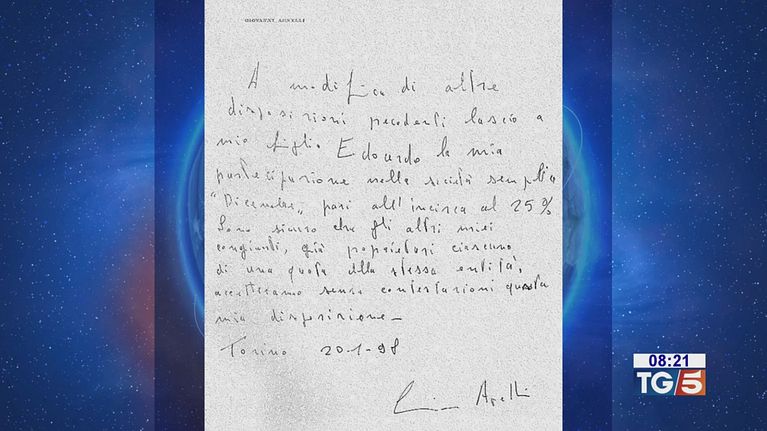 GIOVANNI AGNELLI
A modifica di altre
disposizioni precedenti lascio a
mio figlio Edoardo la mia
partecipazione nella società semplice
"Dicembre", pari all'incirca al 25%
Sono sicuro che gli altri miei
congiunti, già proprietari ciascuno
di una quota della stessa entità,
accetteranno senza contestazioni questa
mia disposizione-
Torino 20-1-98
Agnelli
08:21
TG5